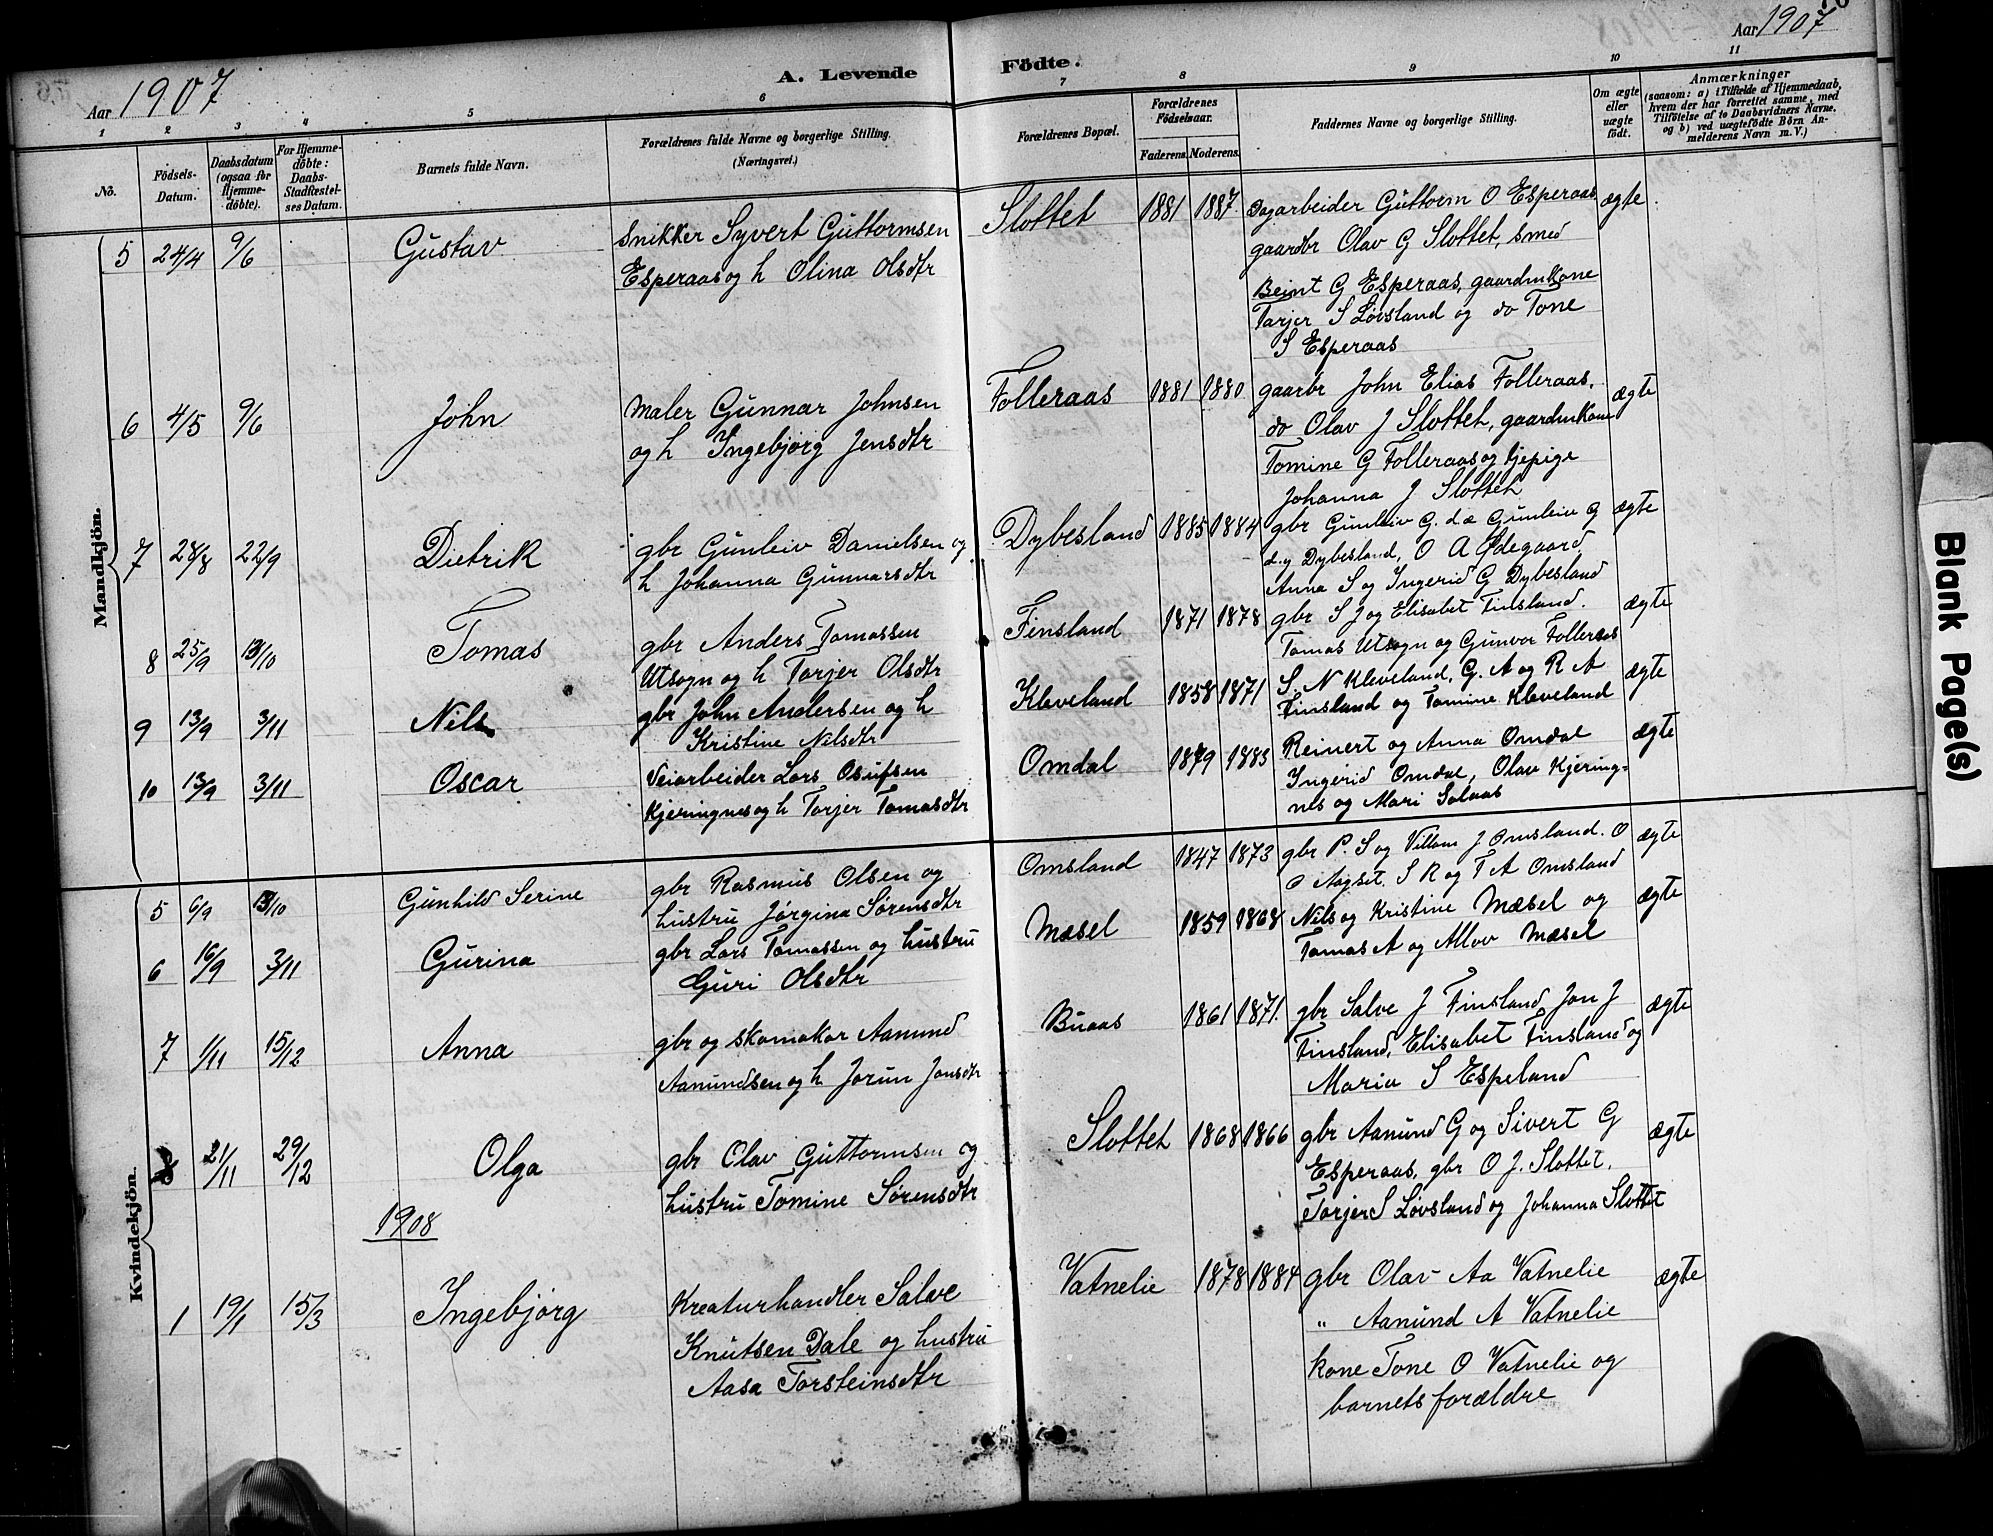 Aar 1907
A. Levende Födte.
Aar 1907
1 2 3 4 5 6 7 8 9 10 11
No.
Födsels-Datum.
Daabsdatum (ogsaa for Hjemme-döbte).
For Hjemme-döbte: Daabs-Stadfæstel-ses Datum.
Barnets fulde Navn.
Forældrenes fulde Navne og borgerlige Stilling.
(Næringsvei.)
Forældrenes Bopæl.
Forældrenes Födselsaar.
Faderens. Moderens.
Faddernes Navne og borgerlige Stilling.
Om ægte eller uægte födt.
Anmærkninger
(saasom: a) i Tilfælde af Hjemmedaab,
hvem der har forrettet samme, med
Tilföielse af to Daabsvidners Navne,
og b) ved uægtefödte Börn An-
melderens Navn m. V.)
Mandkjön.
5 24/4 9/6 Gustav
Snikker Syvert Guttormsen
Esperaas og h Olina Olsdtr
Slottet 1881 1887
Dagarbeider Guttorm O Esperaas
gaardbr Olav G Slottet, smed
Beint G Esperaas, gaardmkone
Tarjer S Løvsland og do Tone
S Esperaas
ægte
6 4/5 9/6 John
Maler Gunnar Johnsen
og h Ingebjørg Jensdtr
Folleraas 1881 1880
gaarbr John Elias Folleraas,
do Olav J Slottet, gaardmkone
Tomine G Folleraas og tjepige
Johanna J Slottet
ægte
7 28/8 22/9 Dietrik
gbr Gunleiv Danielsen og
h Johanna Gunnarsdtr
Dybesland 1885 1884
gbr Gunleiv G. d.æ Gunleiv G
d.y Dybesland, O A Ødegaard,
Anna S og Ingerid G Dybesland
ægte
8 25/9 13/10 Tomas
gbr Anders Tomassen
Utsogn og h Torjer Olsdtr
Finsland 1871 1878
gbr S J og Elisabet Finsland.
Tomas Utsogn og Gunvor Folleraas
ægte
9 13/9 3/11 Nils
gbr John Andersen og h
Kristine Nilsdtr
Kleveland 1858 1871
S. N Kleveland, G. A og R A
Finsland og Tomine Kleveland
ægte
10 13/9 3/11 Oscar
Veiarbeider Lars Osufsen
Kjeringnes og h Torjer Tomasdtr
Omdal 1879 1883
Reinert og Anna Omdal
Ingerid Omdal, Olav Kjering-
nes og Mari Solaas
ægte
Kvindekjön.
5 6/9 13/10 Gunhild Serine
gbr Rasmus Olsen og
hustru Jørgina Sørensdtr
Omsland 1847 1873
gbr P. S og Villum J Omsland. O
O Aagset. S R og T A Omsland
ægte
6 16/9 3/11 Gurina
gbr Lars Tomassen og hustru
Guri Olsdtr
Mæsel 1859 1868
Nils og Kristine Mæsel og
Tomas A og Allov Mæsel
ægte
7 1/11 15/12 Anna
gbr og skomakar Aanund
Aanundsen og h Jorun Jonsdtr
Buaas 1861 1871.
gbr Salve J Finsland, Jon J
Finsland, Elisabet Finsland og
Maria S Espeland
ægte
8 21/11 29/12 Olga
gbr Olav Guttormsen og
hustru Tomine Sørensdtr
Slottet 1868 1866
gbr Aanund G og Sivert G
Esperaas, gbr O J. Slottet,
Torjer S Løvsland og Johanna Slottet
ægte
1908
1 19/1 15/3 Ingebjørg
Kreaturhandler Salve
Knutsen Dale og hustru
Aasa Torsteinsdtr
Vatnelie 1878 1884
gbr Olav Aa Vatnelie
" Aanund A Vatnelie
kone Tone O Vatnelie og
barnets forældre
ægte
Blank Page(s)